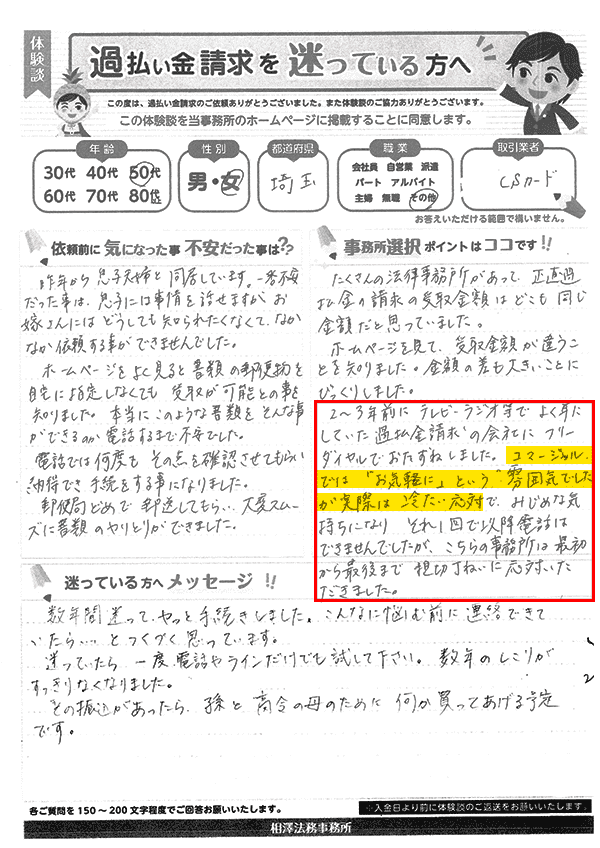 体験談
過払い金請求を迷っている方へ
この度は、過払い金請求のご依頼ありがとうございました。また体験談のご協力ありがとうございます。
この体験談を当事務所のホームページに掲載することに同意します。
年齢
30代 40代 50代
60代 70代 80代
性別
男・女
都道府県
埼玉
職業
会社員 自営業 派遣
パート アルバイト
主婦 無職 その他
取引業者
CSカード
お答えいただける範囲で構いません。
依頼前に気になった事 不安だった事は??
昨年から息子夫婦と同居しています。一番不安
だった事は、息子には事情を話せますが、お
嫁さんにはどうしても知られたくなくて、なか
なか依頼する事ができませんでした。
ホームページをよく見ると書類の郵便物を
自宅に指定しなくても受取が可能との事を
知りました。本当にこのような書類をそんな事
ができるのか電話するまで不安でした。
電話では何度もその点を確認させてもらい
納得でき手続をする事になりました。
郵便局どめで郵送してもらい、大変スムー
ズに書類のやりとりができました。
事務所選択ポイントはココです!!
たくさんの法律事務所があって、正直過
払金の請求の受取金額はどこも同じ
金額だと思っていました。
ホームページを見て、受取金額が違うこ
とを知りました。金額の差も大きいことに
びっくりしました。
2〜3年前にテレビ・ラジオ等でよく耳に
していた過払金請求の会社にフリー
ダイヤルでおたずねしました。コマーシャル
では「お気軽に」という雰囲気でした
が実際は冷たい応対で、みじめな気
持ちになり それ1回で以降電話は
できませんでしたが、こちらの事務所は最初
から最後まで親切丁ねいに応対いた
だきました。
迷っている方へメッセージ!!
数年間迷って、やっと手続きしました。こんなに悩む前に連絡できて
いたら…、とつくづく思っています。
迷っていたら 一度電話やラインだけでも試して下さい。数年のしこりが
すっきりなくなりました。
その振込があったら、孫と高令の母のために何か買ってあげる予定
です。
各ご質問を150〜200文字程度でご回答お願いいたします。
※入金日より前に体験談のご返送をお願いいたします。
相澤法務事務所